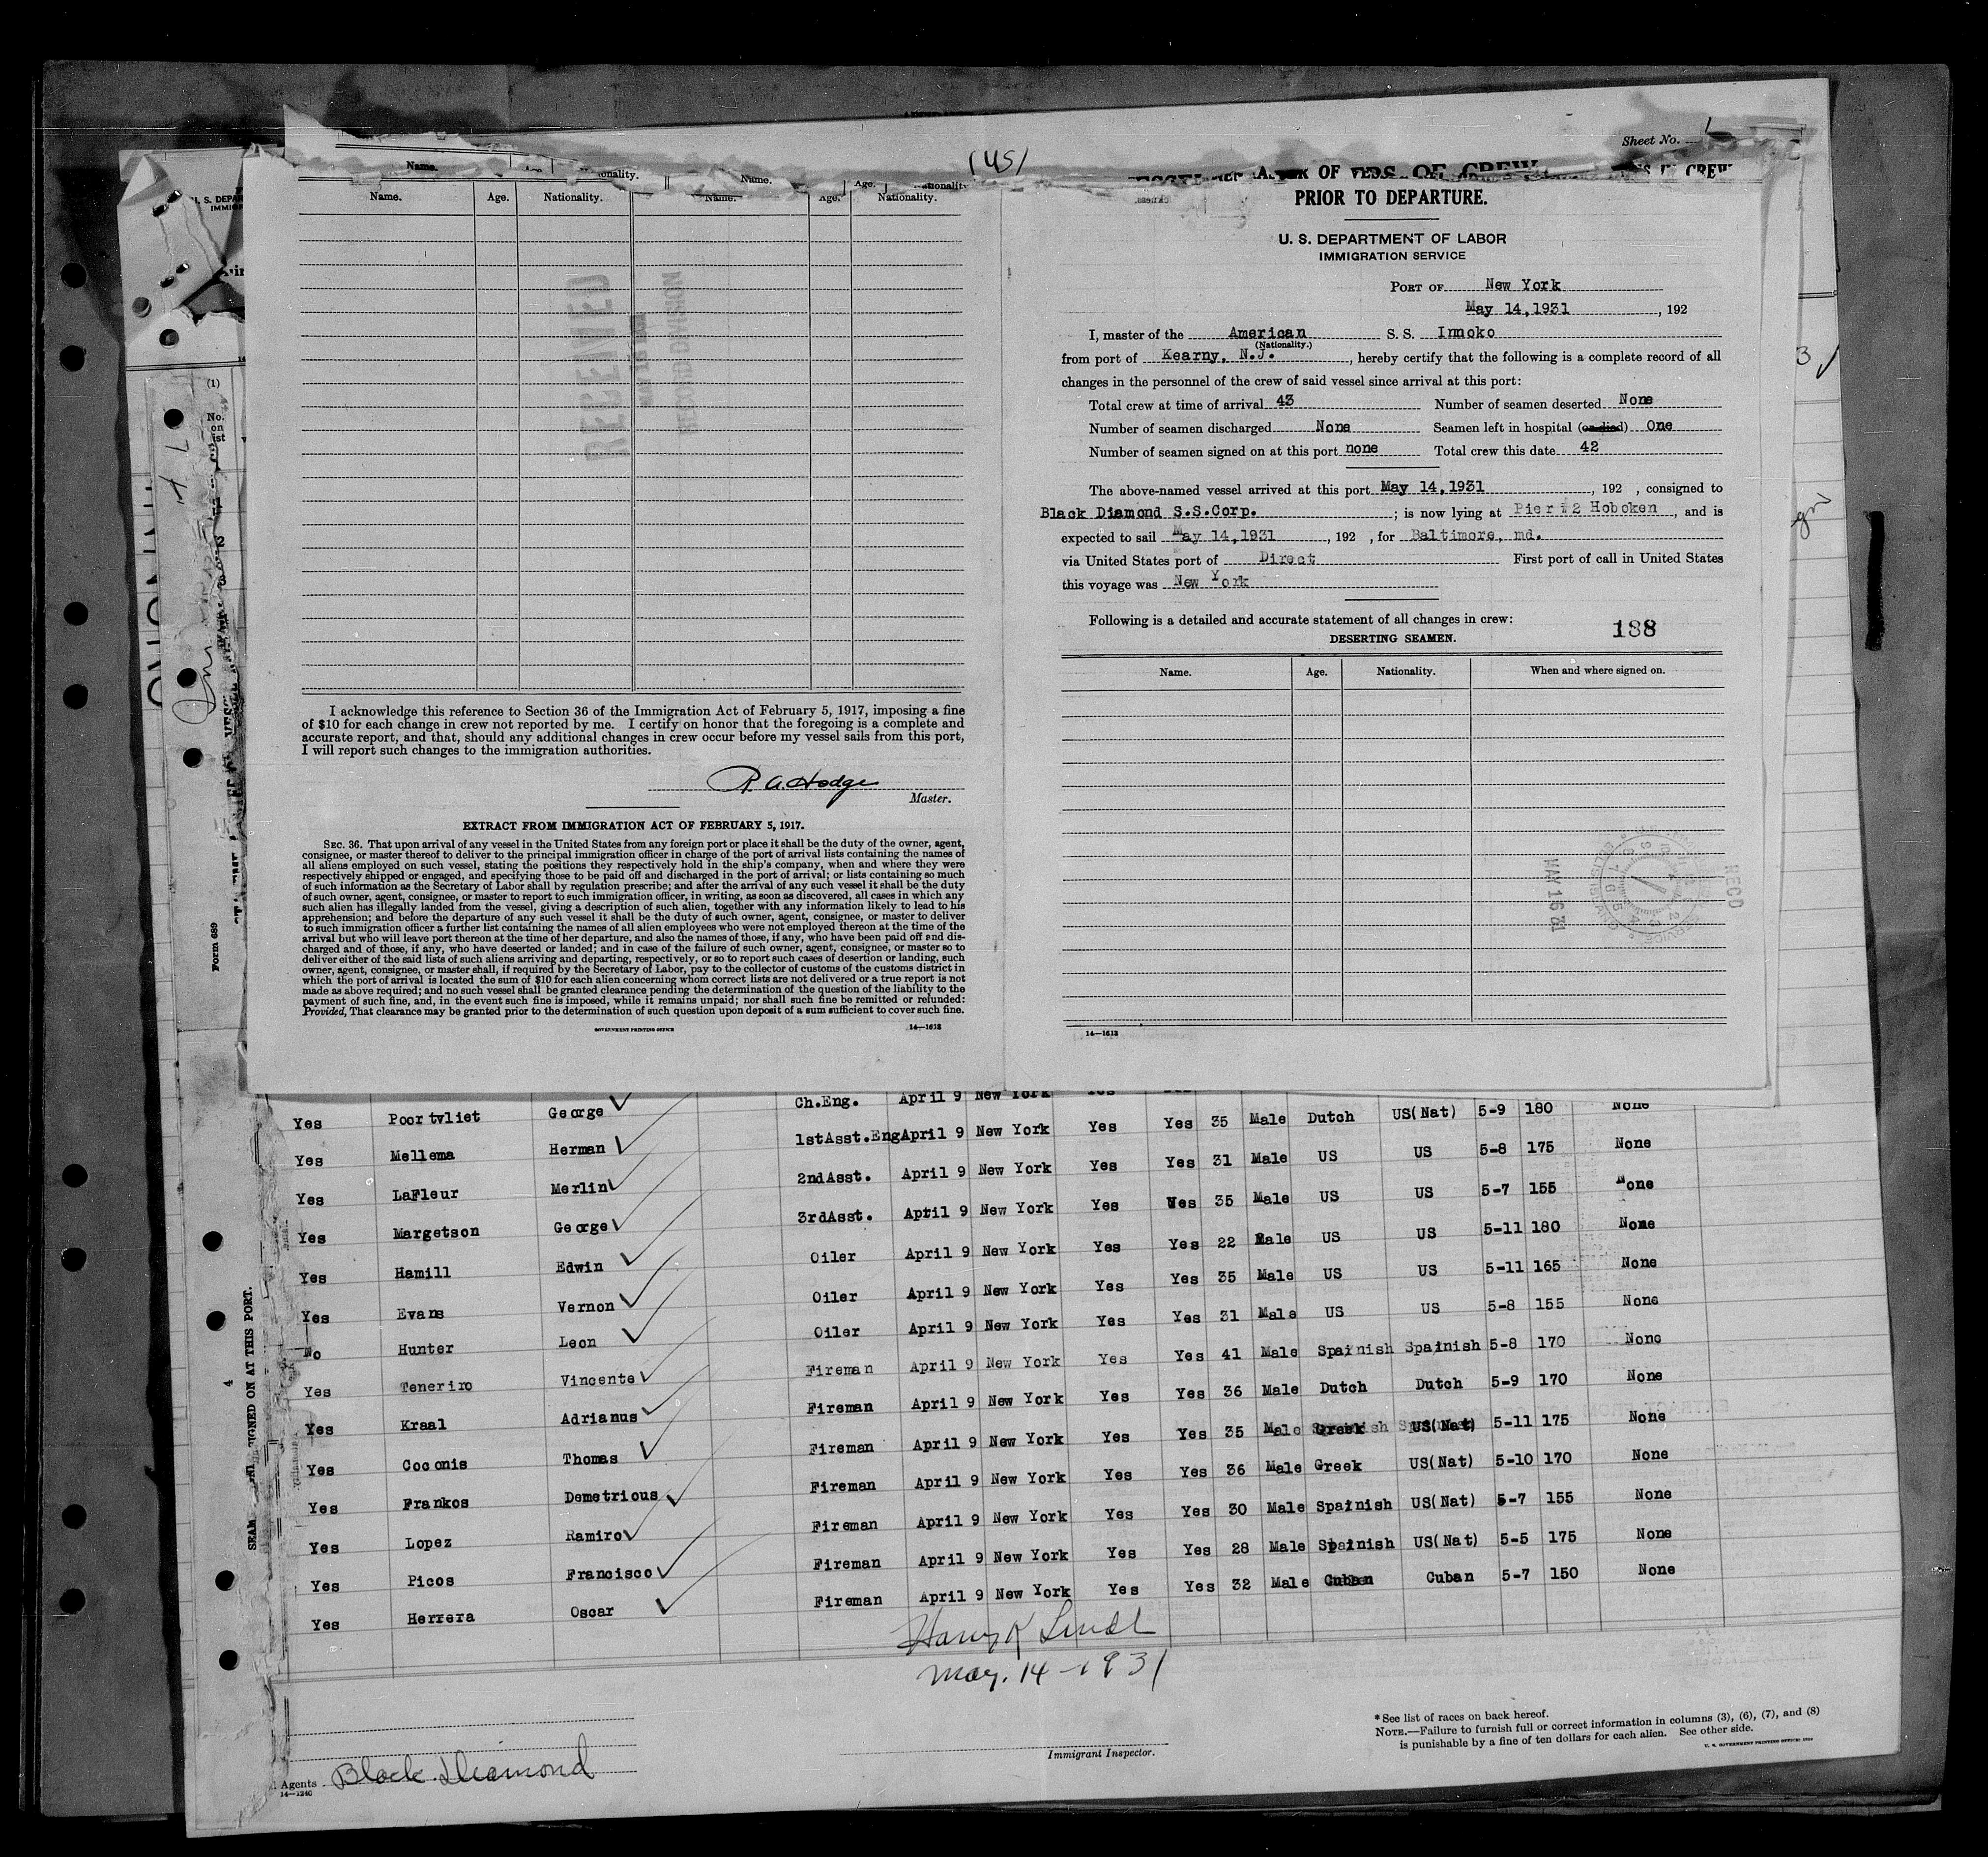 Sheet No. 1
(US)
Name. Age. Nationality. Name. Age. Nationality.
Name. Age. Nationality. Name. Age. Nationality.
OF CREW
PRIOR TO DEPARTURE.
U. S. DEPARTMENT OF LABOR
IMMIGRATION SERVICE
PORT OF New York
May 14,1931, 192
I, master of the American S. S. Innoko
(Nationality.)
from port of Kearny, N.J., hereby certify that the following is a complete record of all
changes in the personnel of the crew of said vessel since arrival at this port:
Total crew at time of arrival 43 Number of seamen deserted None
Number of seamen discharged None Seamen left in hospital (or died) One
Number of seamen signed on at this port none Total crew this date 42
The above-named vessel arrived at this port May 14,1931, 192 , consigned to
Black Diamond S.S.Corp. ; is now lying at Pier #2 Hoboken, and is
expected to sail May 14,1931, 192 , for Baltimore, md.
via United States port of Direct First port of call in United States
this voyage was New York
Following is a detailed and accurate statement of all changes in crew:
188
DESERTING SEAMEN.
Name. Age. Nationality. When and where signed on.
REC'D
MAY 16 31
14—1612
RECEIVED
RECORD DIVISION
I acknowledge this reference to Section 36 of the Immigration Act of February 5, 1917, imposing a fine
of $10 for each change in crew not reported by me. I certify on honor that the foregoing is a complete and
accurate report, and that, should any additional changes in crew occur before my vessel sails from this port,
I will report such changes to the immigration authorities.
R. A. Hodge
Master.
EXTRACT FROM IMMIGRATION ACT OF FEBRUARY 5, 1917.
SEC. 36. That upon arrival of any vessel in the United States from any foreign port or place it shall be the duty of the owner, agent,
consignee, or master thereof to deliver to the principal immigration officer in charge of the port of arrival lists containing the names of
all aliens employed on such vessel, stating the positions they respectively hold in the ship's company, when and where they were
respectively shipped or engaged, and specifying those to be paid off and discharged in the port of arrival; or lists containing so much
of such information as the Secretary of Labor shall by regulation prescribe; and after the arrival of any such vessel it shall be the duty
of such owner, agent, consignee, or master to report to such immigration officer, in writing, as soon as discovered, all cases in which any
such alien has illegally landed from the vessel, giving a description of such alien, together with any information likely to lead to his
apprehension; and before the departure of any such vessel it shall be the duty of such owner, agent, consignee, or master to deliver
to such immigration officer a further list containing the names of all alien employees who were not employed thereon at the time of the
arrival but who will leave port thereon at the time of her departure, and also the names of those, if any, who have been paid off and dis-
charged and of those, if any, who have deserted or landed; and in case of the failure of such owner, agent, consignee, or master so to
deliver either of the said lists of such aliens arriving and departing, respectively, or so to report such cases of desertion or landing, such
owner, agent, consignee, or master shall, if required by the Secretary of Labor, pay to the collector of customs of the customs district in
which the port of arrival is located the sum of $10 for each alien concerning whom correct lists are not delivered or a true report is not
made as above required; and no such vessel shall be granted clearance pending the determination of the question of the liability to the
payment of such fine, and, in the event such fine is imposed, while it remains unpaid; nor shall such fine be remitted or refunded:
Provided, That clearance may be granted prior to the determination of such question upon deposit of a sum sufficient to cover such fine.
GOVERNMENT PRINTING OFFICE 14—1612
(1)
No.
on
Form 689
4
SIGNED ON AT THIS PORT.
Yes Poortvliet George Ch.Eng. April 9 New York Yes Yes 35 Male Dutch US(Nat) 5-9 180 None
Yes Mellema Herman 1stAsst.Eng April 9 New York Yes Yes 31 Male US US 5-8 175 None
Yes LaFleur Merlin 2ndAsst. April 9 New York Yes Yes 35 Male US US 5-7 155 None
Yes Margetson George 3rdAsst. April 9 New York Yes Yes 22 Male US US 5-11 180 None
Yes Hamill Edwin Oiler April 9 New York Yes Yes 35 Male US US 5-11 165 None
Yes Evans Vernon Oiler April 9 New York Yes Yes 31 Male US US 5-8 155 None
No Hunter Leon Oiler April 9 New York Yes Yes 41 Male Spainish Spainish 5-8 170 None
Yes Teneriro Vincente Fireman April 9 New York Yes Yes 36 Male Dutch Dutch 5-9 170 None
Yes Kraal Adrianus Fireman April 9 New York Yes Yes 35 Male Greek US(Nat) 5-11 175 None
Yes Coconis Thomas Fireman April 9 New York Yes Yes 36 Male Greek US(Nat) 5-10 170 None
Yes Frankos Demetrious Fireman April 9 New York Yes Yes 30 Male Spainish US(Nat) 5-7 155 None
Yes Lopez Ramiro Fireman April 9 New York Yes Yes 28 Male Spainish US(Nat) 5-5 175 None
Yes Picos Francisco Fireman April 9 New York Yes Yes 32 Male Cuban Cuban 5-7 150 None
Yes Herrera Oscar Fireman April 9 New York
May. 14-1931
Immigrant Inspector.
Agents Black Diamond
14—1240
*See list of races on back hereof.
NOTE.—Failure to furnish full or correct information in columns (3), (6), (7), and (8)
is punishable by a fine of ten dollars for each alien. See other side.